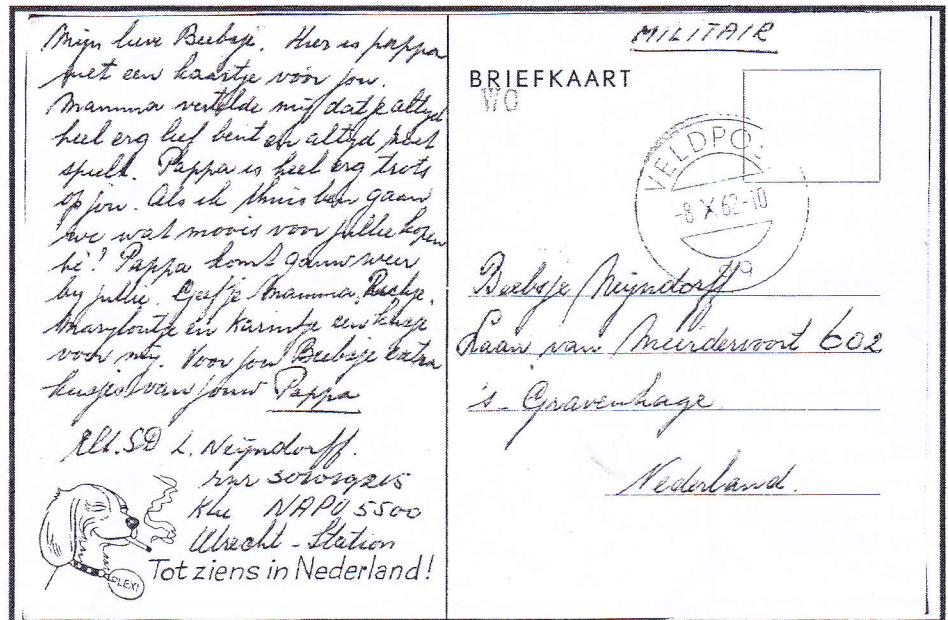 Mijn lieve Beebsje. Hier is pappa
met een kaartje vóór jou.
Mamma vertelde mij dat je altijd
heel erg lief bent en altijd zoet
speelt. Pappa is heel erg trots
op jou. Als ik thuis ben gaan
we wat moois voor jullie kopen
hè? Pappa komt gauw weer
bij jullie. Geef je Mamma,
Maryloutje en Karintje een kusje
voor mij. Voor jou Beebsje extra
kusjes van jouw Pappa
L. Neijndorff.
rnr
Klu NAPO 5500
Utrecht - Station
PLEXI
Tot ziens in Nederland!
MILITAIR
BRIEFKAART
WO
VELDPO
-8 X 62-10
Beebsje Neijndorff
Laan van Meerdervoort 602
's-Gravenhage
Nederland.